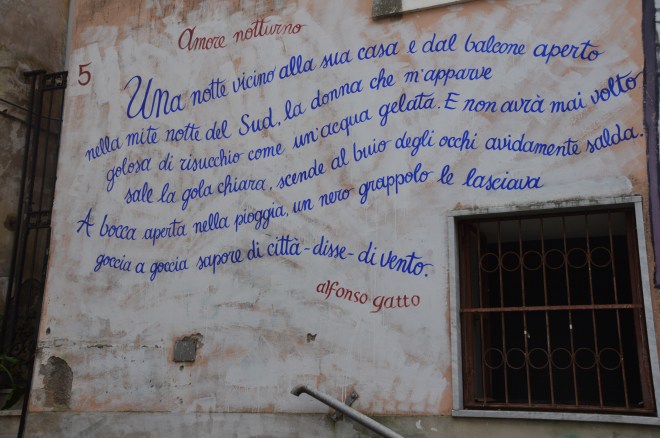 Amore notturno
5
Una notte vicino alla sua casa e dal balcone aperto
nella mite notte del Sud, la donna che m'apparve
golosa di risucchio come un'acqua gelata. E non avrà mai volto
sale la gola chiara, scende al buio degli occhi avidamente salda.
A bocca aperta nella pioggia, un nero grappolo le lasciava
goccia a goccia sapore di città - disse - di vento.
alfonso gatto